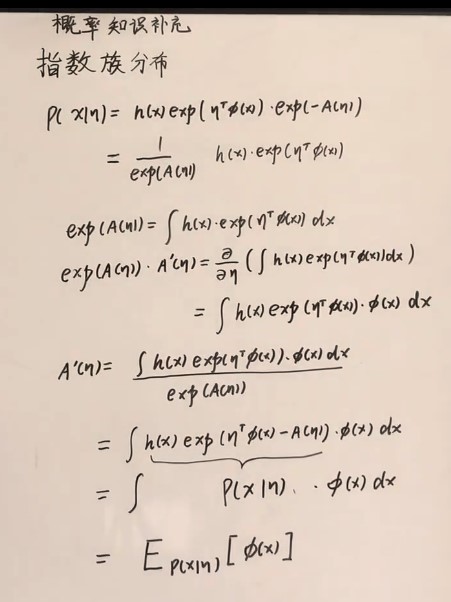 概率知识补充
指数族分布
P(x|η) = h(x) exp(η^T φ(x)) · exp(-A(η))
= 1/exp(A(η)) h(x) · exp(η^T φ(x))
exp(A(η)) = ∫ h(x) · exp(η^T φ(x)) dx
exp(A(η)) · A'(η) = ∂/∂η (∫ h(x) exp(η^T φ(x)) dx)
= ∫ h(x) exp(η^T φ(x)) · φ(x) dx
A'(η) = ∫ h(x) exp(η^T φ(x)) · φ(x) dx / exp(A(η))
= ∫ h(x) exp(η^T φ(x) - A(η)) · φ(x) dx
= ∫ P(x|η) · φ(x) dx
= E_{P(x|η)} [φ(x)]